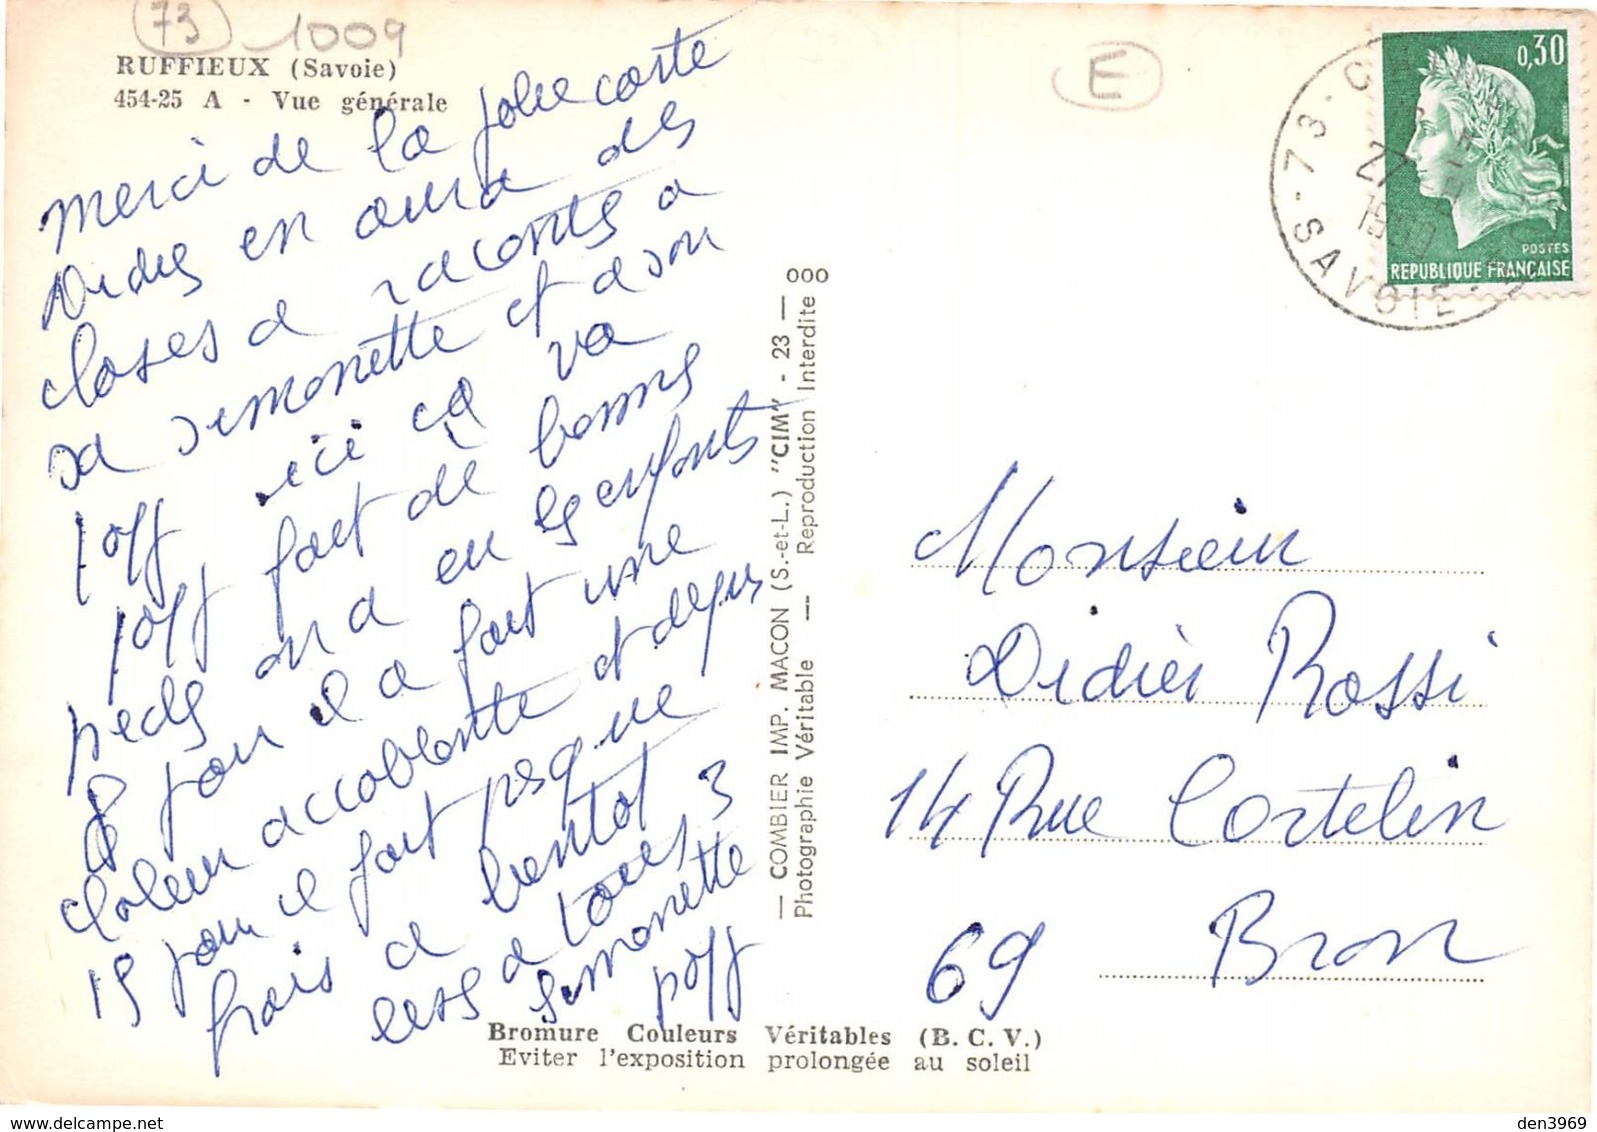 73
1009
RUFFIEUX (Savoie)
454-25 A - Vue générale
E
0,30
POSTES
REPUBLIQUE FRANÇAISE
73 - C
27
SAVOIE
merci de la jolie carte
Didier en aura des
choses a raconter a
sa simonette et a son
poff ici ca va
poff fait de bonne
on a eu les enfants
8 jour il a fait une
chaleur accablante et depuis
15 jour il fait presque
frais a bientot
a tous 3
simonette
poff
— COMBIER IMP. MACON (S.-et-L.) "CIM" - 23 — 000
Photographie Véritable — Reproduction Interdite
Monsieur
Didier Rossi
14 Rue Cortelin
69 Bron
Bromure Couleurs Véritables (B. C. V.)
Eviter l'exposition prolongée au soleil
www.delcampe.net
den3969